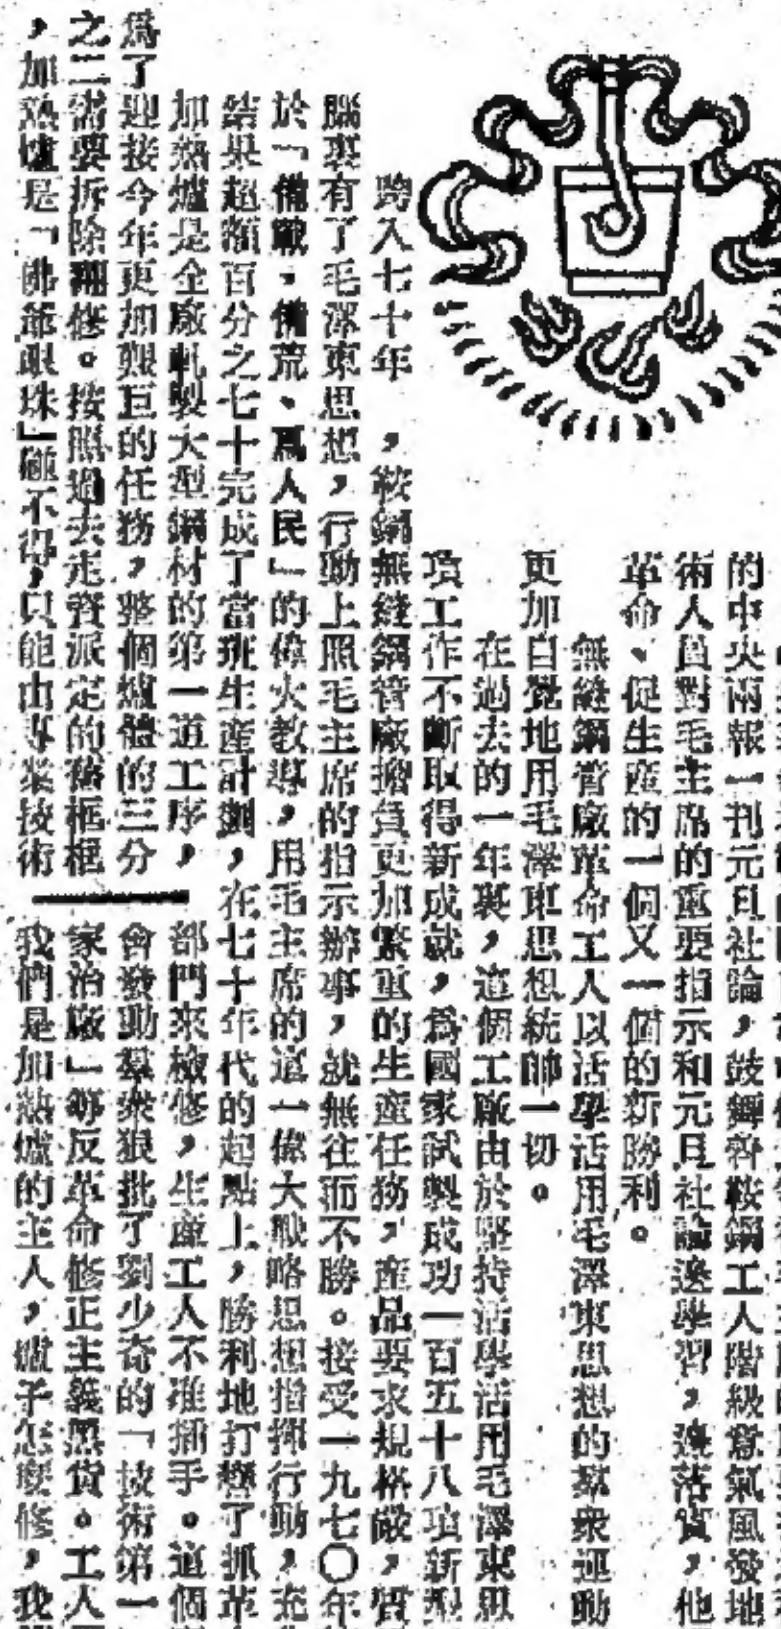 的中央兩報一刊元旦社論，鼓舞着鞍鋼工人階級意氣風發地
術人員對毛主席的重要指示和元旦社論邊學習，邊落實，他
革命、促生產的一個又一個的新勝利。
無縫鋼管廠革命工人以活學活用毛澤東思想的羣衆運動
更加自覺地用毛澤東思想統帥一切。
在過去的一年裏，這個工廠由於堅持活學活用毛澤東思
項工作不斷取得新成就，爲國家試製成功一百五十八項新型
跨入七十年 ，鞍鋼無縫鋼管廠擔負更加繁重的生產任務，產品要求規格嚴，質
腦裏有了毛澤東思想，行動上照毛主席的指示辦事，就無往而不勝。接受一九七〇年
於「備戰、備荒、爲人民」的偉大教導，用毛主席的這一偉大戰略思想指揮行動，充
結果超額百分之七十完成了當班生產計劃，在七十年代的起點上，勝利地打響了抓革
加熱爐是全廠軋製大型鋼材的第一道工序，
爲了迎接今年更加艱巨的任務，整個爐體的三分
之二需要拆除翻修。按照過去走資派定的舊框框
，加熱爐是「佛爺眼珠」碰不得，只能由專業技術
部門來檢修，生產工人不准插手。這個
會發動羣衆狠批了劉少奇的「技術第一
家治廠」等反革命修正主義黑貨。工人
我們是加熱爐的主人，爐子怎麼修，我